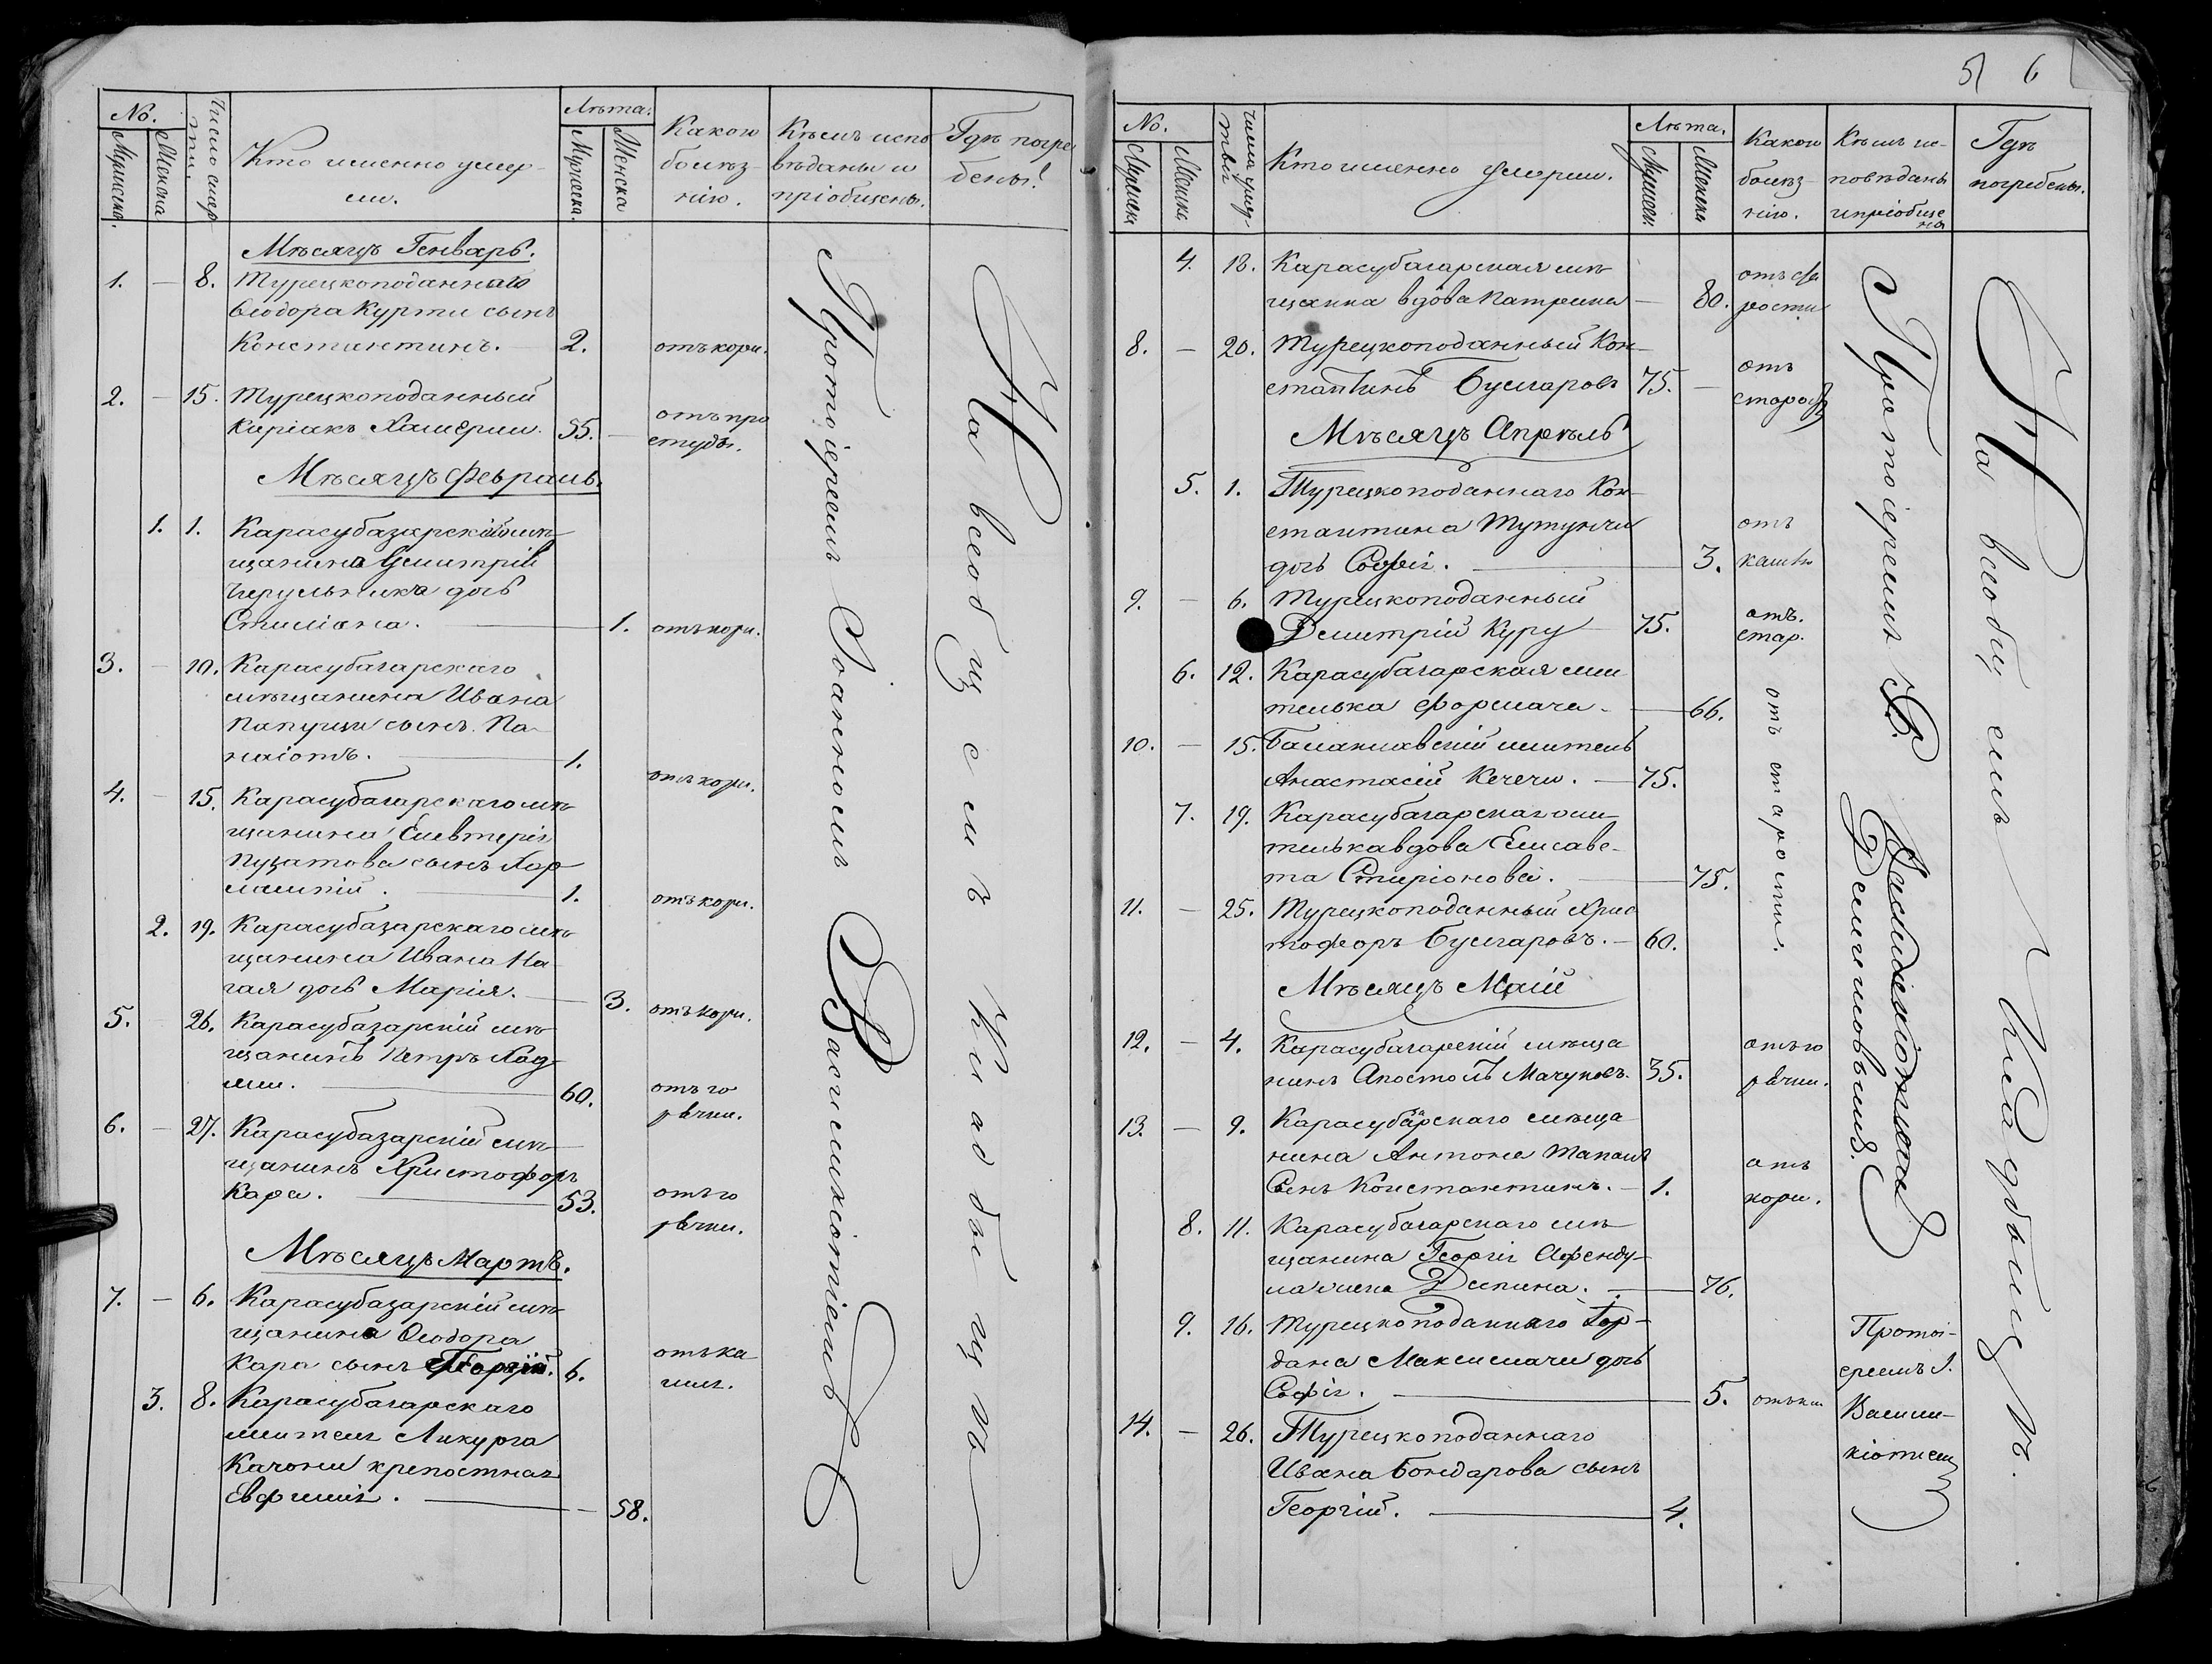 No.
Мужеска.
Женска
Число смер
ти.
Кто именно умер-
ли.
Лѣта.
Мужеска.
Женска
Какою
болѣз-
нію.
Кѣмъ испо
вѣданы и
пріобщены.
Гдѣ погре
бены?
Мѣсяцъ Генварь.
1. — 8. Турецкоподаннаго
Ѳеодора Курти сынъ
Константинъ. — 2. отъ кори.
2. — 15. Турецкоподанный
Киріакъ 35. — отъ про
студы.
Мѣсяцъ Февраль.
1. 1. Карасубазарскій мѣ-
щанина Димитрія
дочь
Стиліана. — 1. отъ кори.
3. — 10. Карасубазарскаго
мѣщанина Ивана
Папуци сынъ Па-
наіотъ. — 1. отъ кори.
4. — 15. Карасубазарскаго мѣ-
щанина Елевтерія
Пузатова сынъ Хар
лампій. — 1. отъ кори.
2. 19. Карасубазарскаго мѣ-
щанина Ивана На-
гая дочь Марія. — 3. отъ кори.
5. 26. Карасубазарскій мѣ-
щанинъ Петръ Хад-
жи. — 60. отъ го
рячки.
6. — 27. Карасубазарскій мѣ-
щанинъ Христофоръ
Кара. — 53. отъ го
рячки.
Мѣсяцъ Мартъ.
7. — 6. Карасубазарскій мѣ-
щанина Ѳеодора
Кара сынъ Георгій. 6. отъ ка
шля.
3. 8. Карасубазарскаго
жителя Ликурга
Качони крепостная
Евфимія. — 58.
Протоіереемъ Іоанномъ Василикіотіемъ
На всеобщемъ кладбищѣ
5 6
No.
Мужеска
Женска
Числа умер-
твія
Кто именно умерли.
Лѣта.
Мужеск.
Женска
Какою
болѣз
нію.
Кѣмъ ис-
повѣданы
и пріобще
на
Гдѣ
погребены.
4. 18. Карасубазарская мѣ-
щанка вдова Катрина — 80. отъ ста
рости
8. — 20. Турецкоподанный Кон-
стантинъ Булгаровъ 75. — отъ
старос
Мѣсяцъ Апрѣль
5. 1. Турецкоподаннаго Кон-
стантина Тутунчи
дочь Софія. — 3. отъ
кашлю
9. — 6. Турецкоподанный
Димитрій Куру 75. отъ.
стар.
6. 12. Карасубазарская жи
телька — 66.
10. — 15. Балаклавскій житель
Анастасій Кечечи. — 75.
7. 19. Карасубазарская жи
телька вдова Елисаве-
та — 75.
11. — 25. Турецкоподанный Хрис
тофоръ Булгаровъ. — 60.
отъ старости.
Мѣсяцъ Маій
12. — 4. Карасубазарскій мѣща
нинъ Апостолъ Мачуковъ. 35. отъ го
рячки.
13. — 9. Карасубазарскаго мѣща
нина Антона
Сынъ Константинъ. — 1. отъ
кори.
8. 11. Карасубазарскаго мѣ-
щанина Георгія Афенду-
ла жена Деспина. — 76.
9. 16. Турецкоподаннаго Іор-
дана Максимачи дочь
Софія. — 5. отъ ка
14. — 26. Турецкоподаннаго
Ивана Бондарова сынъ
Георгій. — 4.
Протоіереемъ
Димитріовымъ.
Протоі-
ереемъ І.
Васили-
кіотіем
На всеобщемъ кладбищѣ.